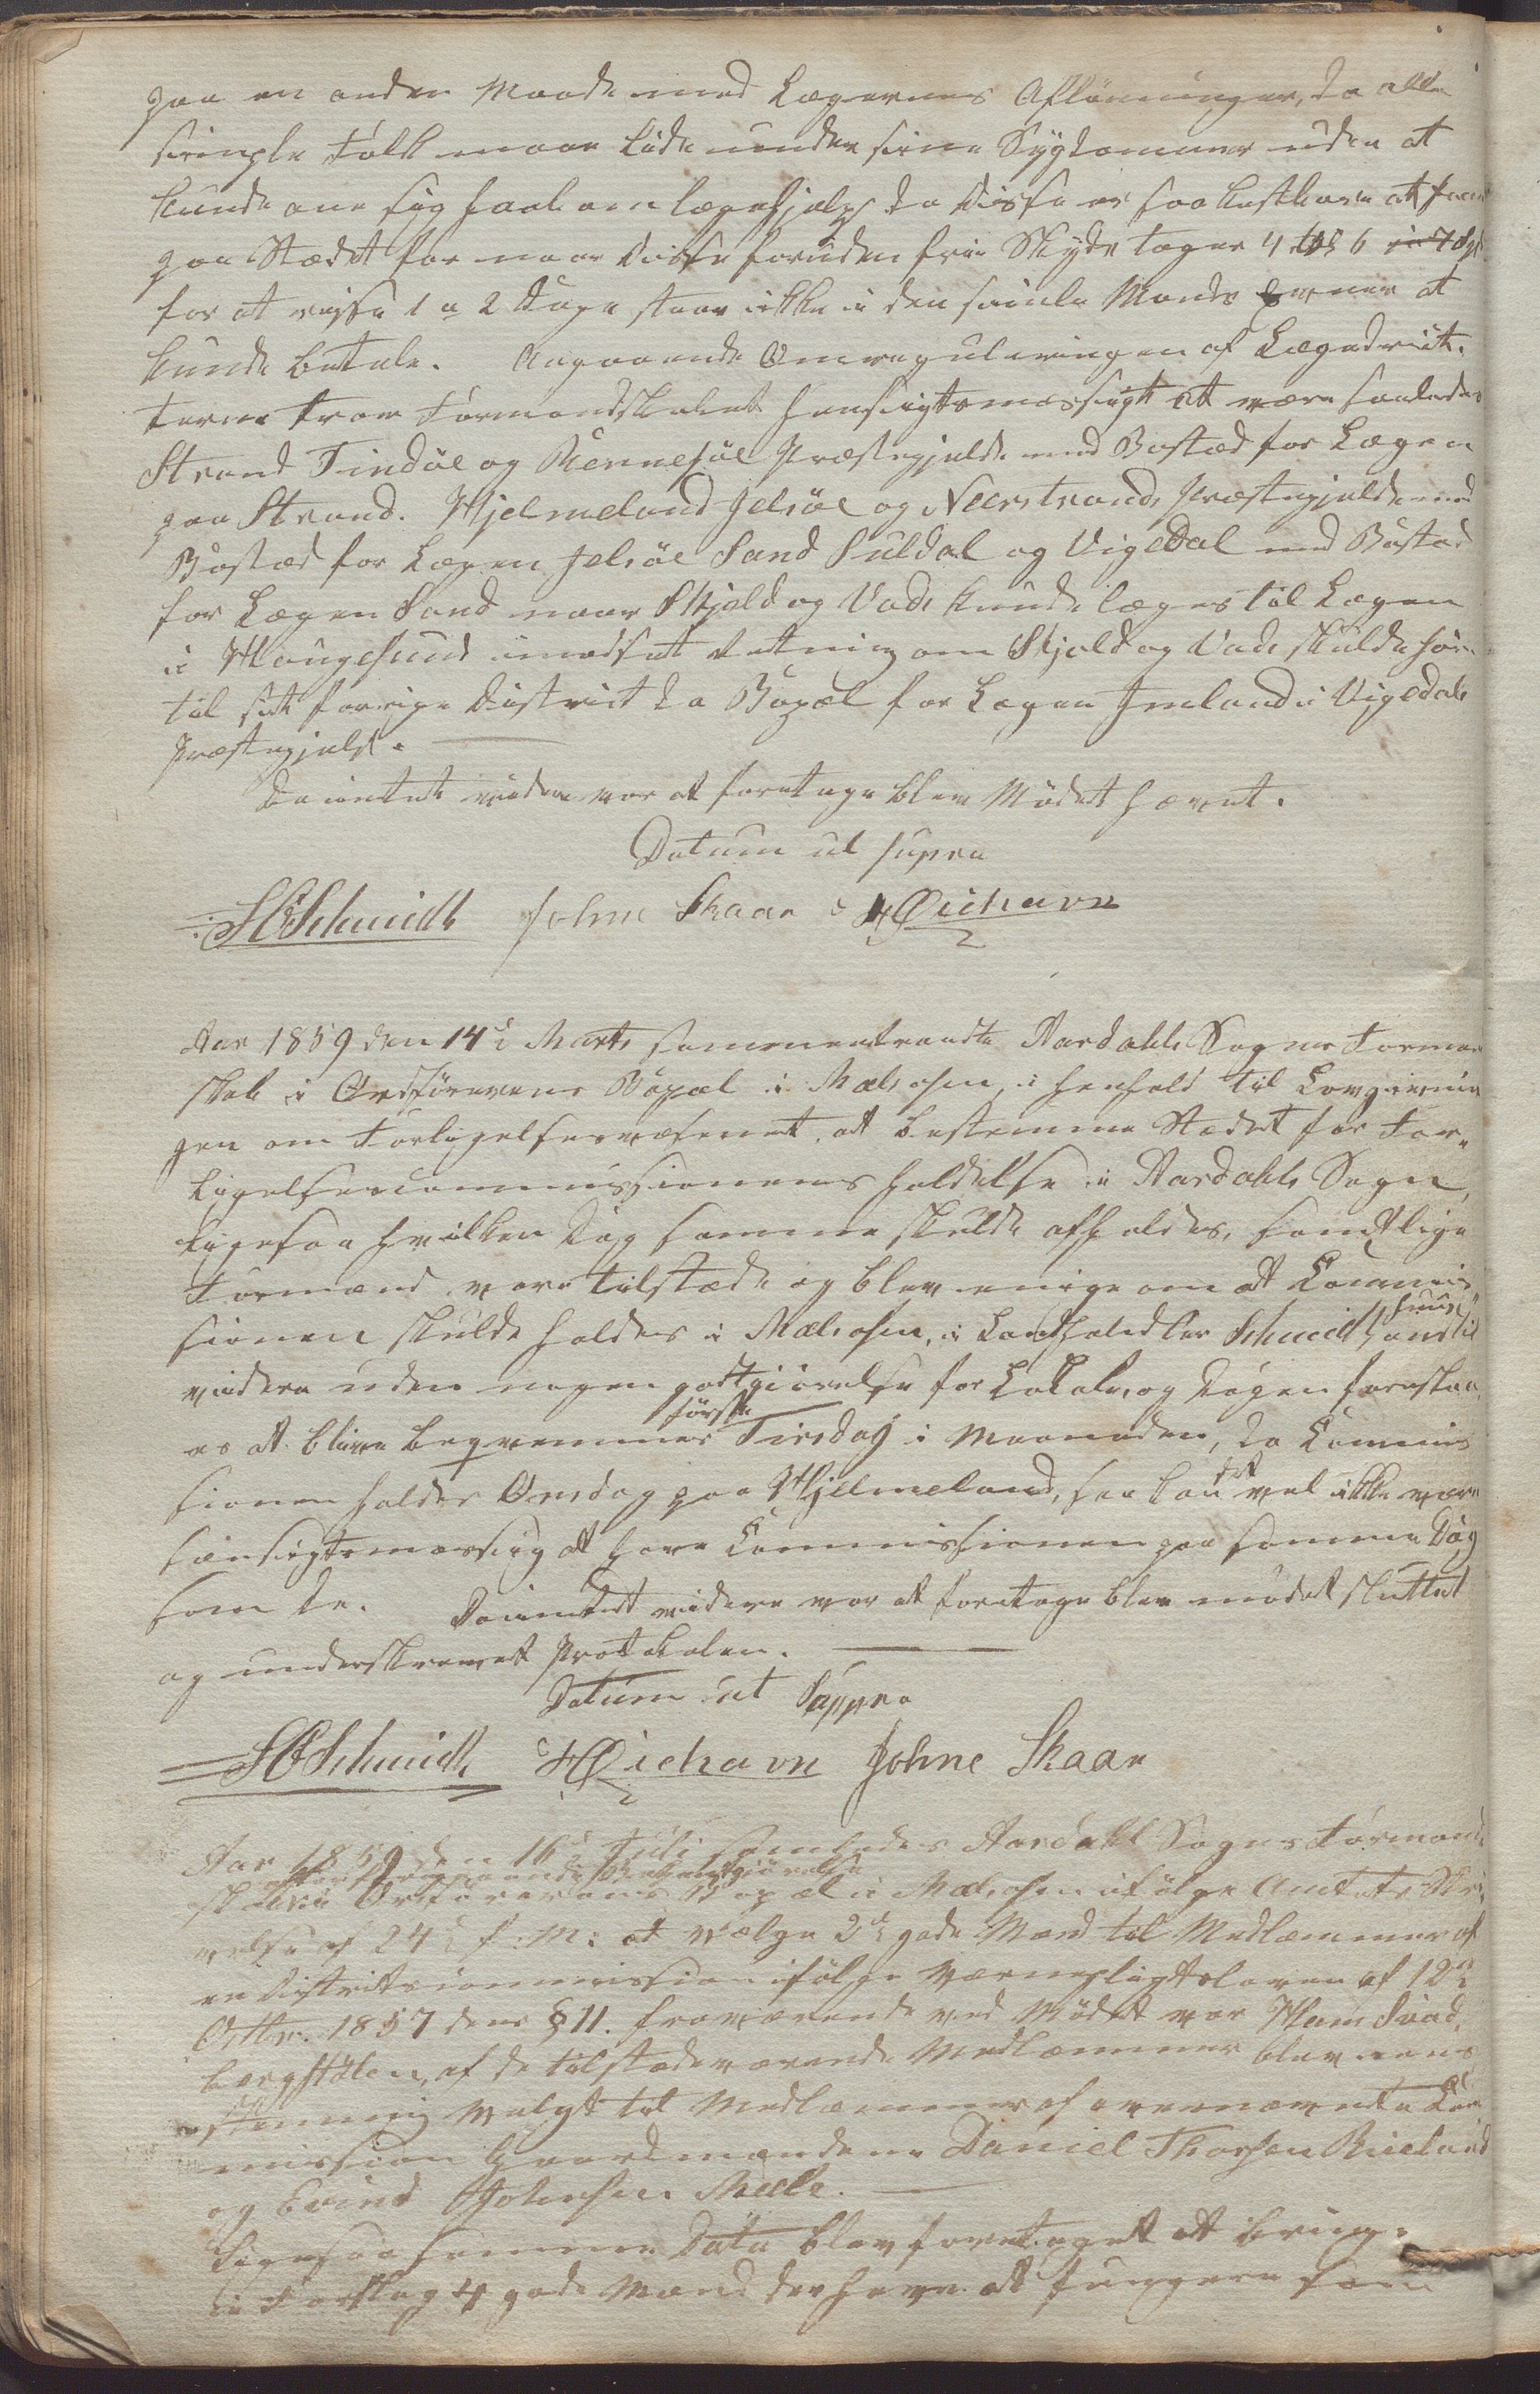 paa en anden Maade med Lægernes Aflönninger, da alle
simple Folk maae lide under sine Sygdommer uden at
kunde ane sig Haab om lægehjælp da disse er saa kostbare at faae
paa Stædet for naar disse foruden frie Skyds tager 4 til 6 
for at reise 1 a 2 Dage staar ikke i den simle Mands Evner at
kunde betale. Angaaende Omreguleringen af Lægedistrik-
terne troer Formandskabet hensigtsmæssigt at være saaledes
Strand Findöe og Rennesöe Præstegjelde med Bosted for Lægen
paa Strand. Hjelmeland Jelsöe og Neerstrands Præstegjelde med
Bosted for Lægen Jelsöe Sand Suldal og Vigedal med Bosted
for Lægen Sand naar Skjold og Vads kunde læges til Lægen
i Hougesund imodsat Retning om Skjold og Vads skulde höre
til sit forrige District da Bopæl for Lægen Imeland i Vigedals
Præstegjeld.
Da intet videre var at foretage blev Mödet hævet.
Datum ut supra
Schmidt Johne Skaar H Öiehavn
Aar 1859 den 14d Marts sammentraadte Aardahls Sogns Forman
skab i Ordförerens Bopæl i Mælsosen, i henhold til Lovgivnin
gen om Forligelsesvæsenet, at bestemme Stedet for For-
ligelsescommissionens holdelse i Aardahls Sogn,
ligesaa hvilken Dag samme skulde afholdes, samtlige
Formænd vare tilstæde og blev enige om at Commis
sionen skulde holdes i Mælsosen, i Landhandler Schmidts huus indtil
videre uden nogen godtgiörelse for Lokale, og Dagen foreslaa
es at blive beqvemmes förste Tirsdag i Maaneden, da Commis
sionen holdes Onsdag paa Hjelmeland, saa kan det vel ikke være
hensigtsmæssig at have Commissionen paa samme Dag
som de. Da intet videre var at foretage blev mödet sluttet
og underskrevet Protokolen.
Datum ut Suppra
Schmidt H Öiehavn Johne Skaar
Aar 1859 den 16d Juli samledes Aardahl Sogns Formand
skab efter foregaaende Bekjendtgiörelse i Ordförerens Bopæl i Mælsosen ifölge Amtets Skri
velse af 24d f: M: at vælge 2de gode Mænd til Medlæmmer af
en Distriktscommission ifölge Værnepligtsloven af 12d
Octbr. 1857 dens § 11. fraværende ved Mödet var
af de tilstædeværende Medlæmmer blev eens
stemmig valgt til Medlæmmer af ovennævnte Com
mission Gaardmændene Daniel Thorsen Riveland
og Eivind Johnsen Mæle.
Ligesaa samme Dato blev foretaget at bringe
i Forslag 4 gode Mænd der have at fungere som